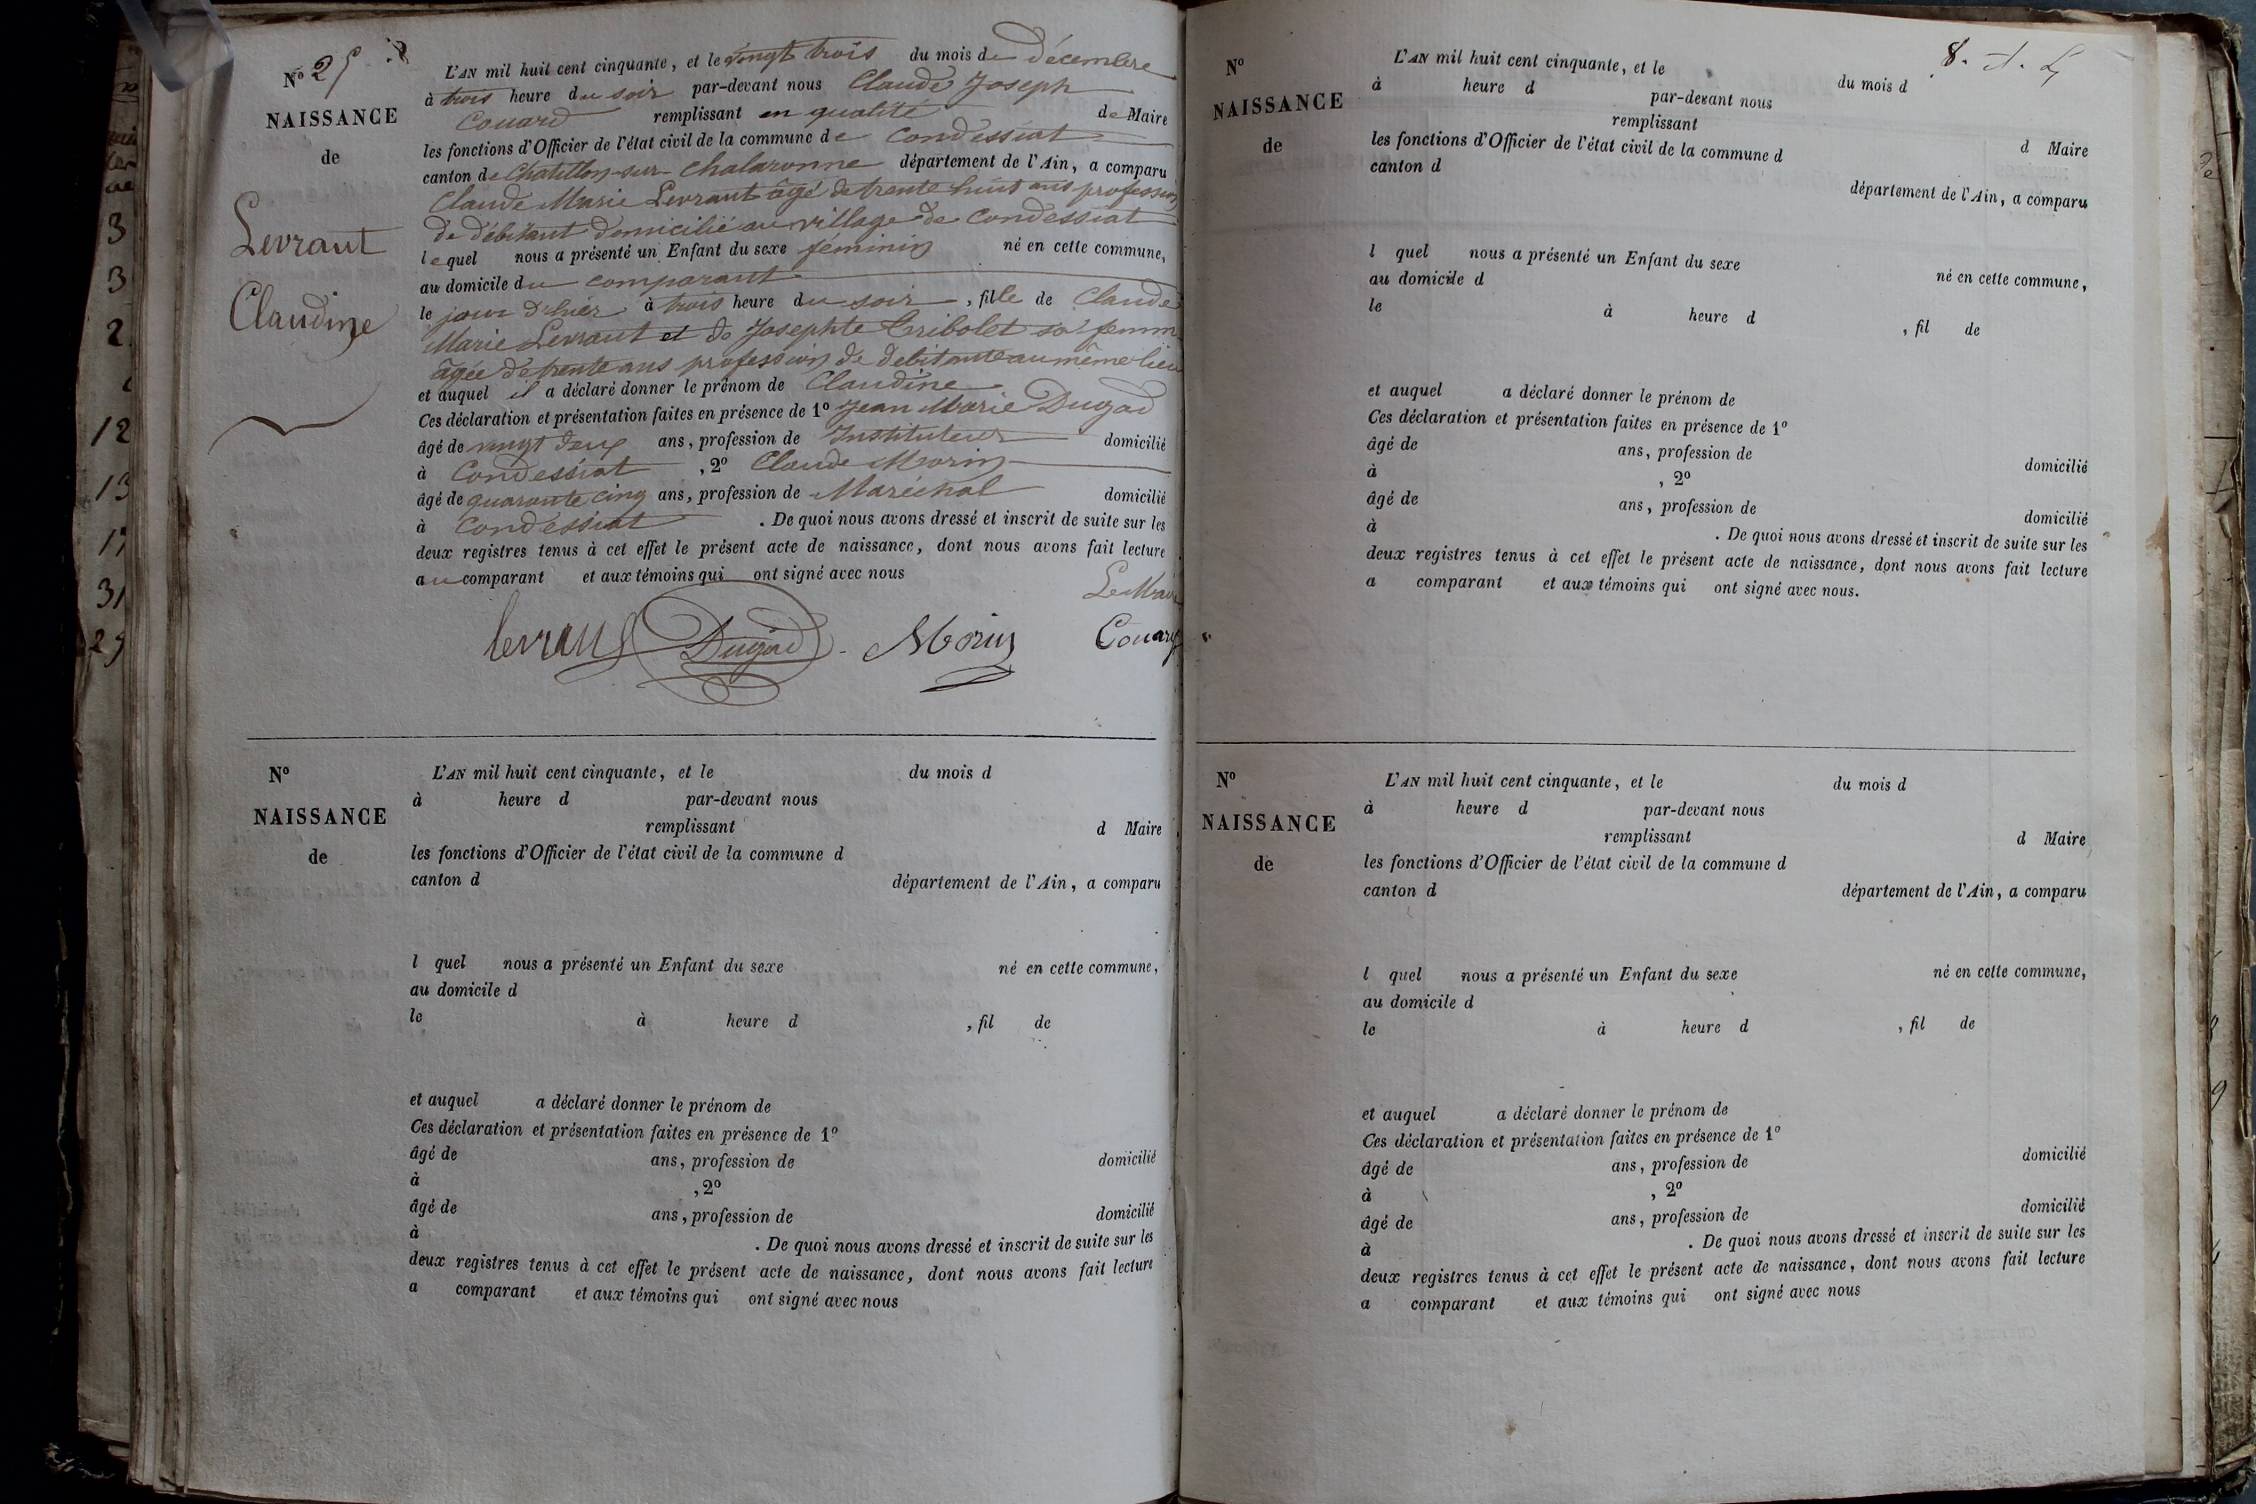 N° 25
NAISSANCE
de
Levraut
Claudine
L'AN mil huit cent cinquante, et le vingt trois du mois de décembre
à trois heure du soir par-devant nous Claude Joseph
Couard remplissant en qualité de Maire
les fonctions d'Officier de l'état civil de la commune de Condessiat
canton de Chatillon-sur-Chalaronne département de l'Ain, a comparu
Claude Marie Levraut âgé de trente huit ans profession
de débitant domicilié au village de Condessiat
lequel nous a présenté un Enfant du sexe féminin né en cette commune,
au domicile du comparant
le jour d'hier à trois heure du soir, fille de Claude
Marie Levraut et de Josephte Tribolet sa femme
âgée de trente ans profession de débitante au même lieu
et auquel il a déclaré donner le prénom de Claudine
Ces déclaration et présentation faites en présence de 1° Jean Marie Dugad
âgé de vingt deux ans, profession de Instituteur domicilié
à Condessiat, 2° Claude Morin
âgé de quarante cinq ans, profession de Maréchal domicilié
à Condessiat. De quoi nous avons dressé et inscrit de suite sur les
deux registres tenus à cet effet le présent acte de naissance, dont nous avons fait lecture
au comparant et aux témoins qui ont signé avec nous
Le Maire
levraut Dugad Morin Couard
N°
NAISSANCE
de
L'AN mil huit cent cinquante, et le du mois d
à heure d par-devant nous
remplissant d Maire
les fonctions d'Officier de l'état civil de la commune d
canton d département de l'Ain, a comparu
l quel nous a présenté un Enfant du sexe né en cette commune,
au domicile d
le à heure d , fil de
et auquel a déclaré donner le prénom de
Ces déclaration et présentation faites en présence de 1°
âgé de ans, profession de domicilié
à , 2°
âgé de ans, profession de domicilié
à . De quoi nous avons dressé et inscrit de suite sur les
deux registres tenus à cet effet le présent acte de naissance, dont nous avons fait lecture
a comparant et aux témoins qui ont signé avec nous
N°
NAISSANCE
de
L'AN mil huit cent cinquante, et le du mois d
à heure d par-devant nous
remplissant d Maire
les fonctions d'Officier de l'état civil de la commune d
canton d département de l'Ain, a comparu
l quel nous a présenté un Enfant du sexe né en cette commune,
au domicile d
le à heure d , fil de
et auquel a déclaré donner le prénom de
Ces déclaration et présentation faites en présence de 1°
âgé de ans, profession de domicilié
à , 2°
âgé de ans, profession de domicilié
à . De quoi nous avons dressé et inscrit de suite sur les
deux registres tenus à cet effet le présent acte de naissance, dont nous avons fait lecture
a comparant et aux témoins qui ont signé avec nous.
N°
NAISSANCE
de
L'AN mil huit cent cinquante, et le du mois d
à heure d par-devant nous
remplissant d Maire
les fonctions d'Officier de l'état civil de la commune d
canton d département de l'Ain, a comparu
l quel nous a présenté un Enfant du sexe né en cette commune,
au domicile d
le à heure d , fil de
et auquel a déclaré donner le prénom de
Ces déclaration et présentation faites en présence de 1°
âgé de ans, profession de domicilié
à , 2°
âgé de ans, profession de domicilié
à . De quoi nous avons dressé et inscrit de suite sur les
deux registres tenus à cet effet le présent acte de naissance, dont nous avons fait lecture
a comparant et aux témoins qui ont signé avec nous